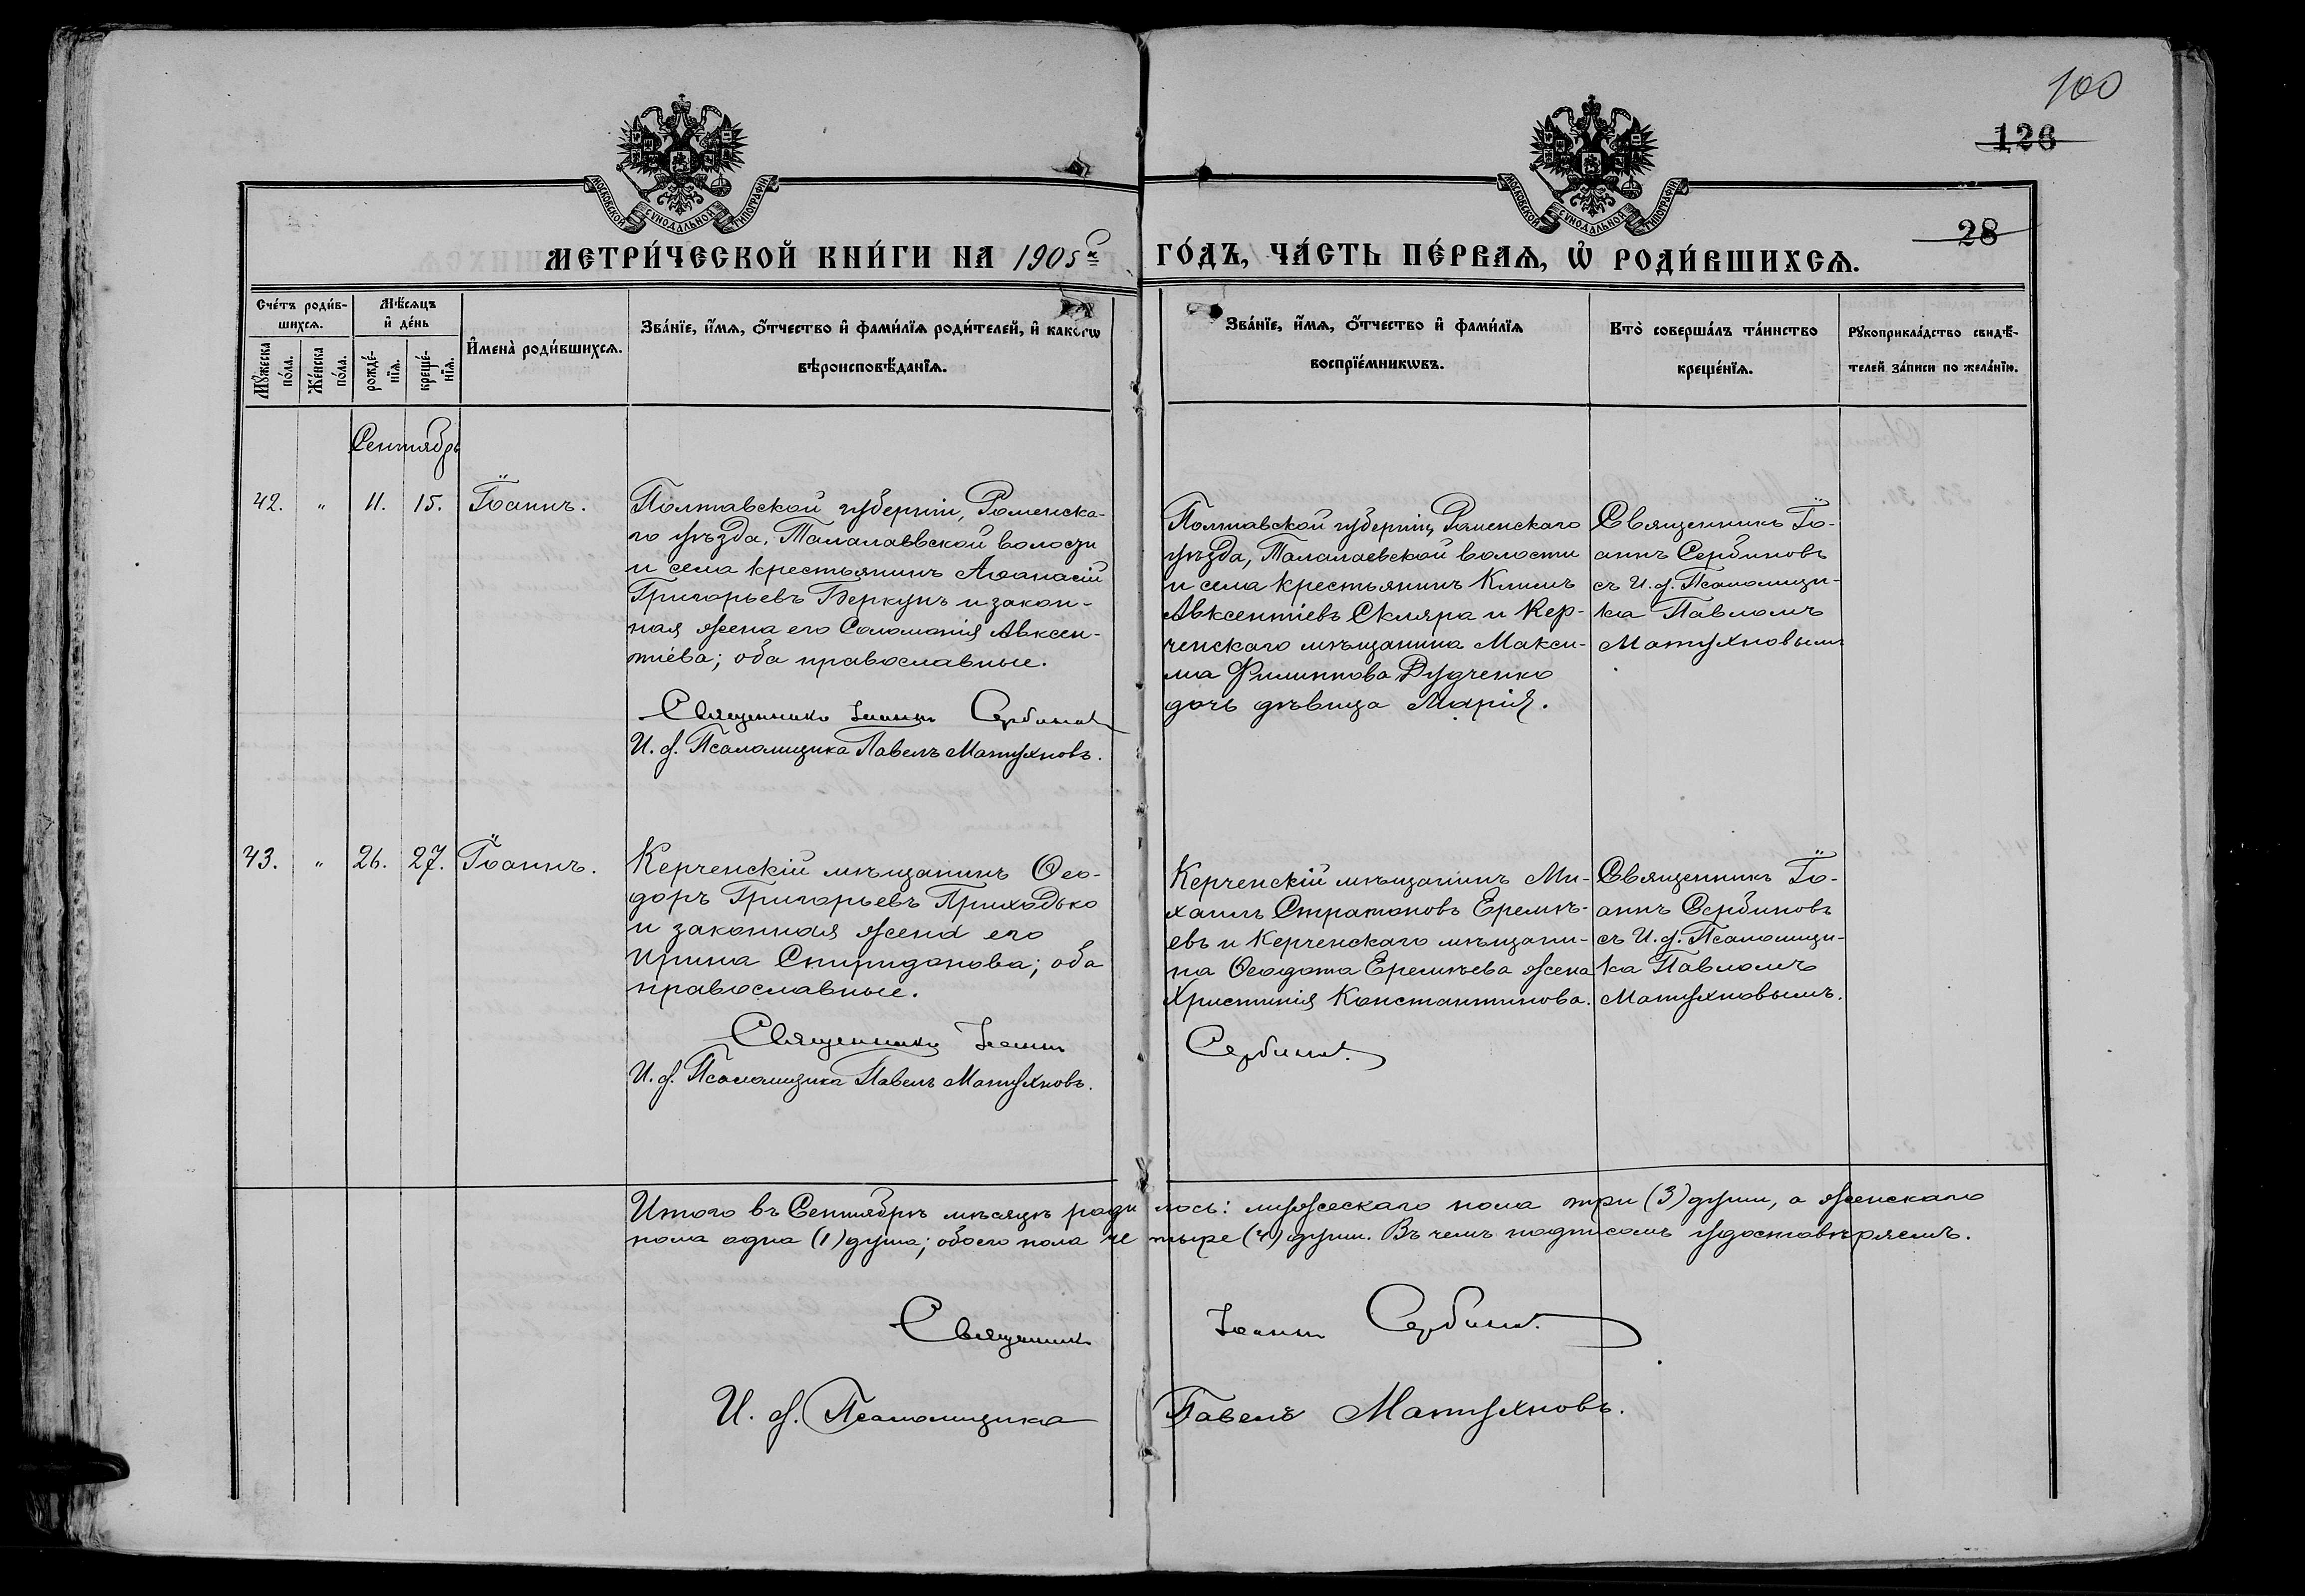 100
126
28
МОСКОВСКОЙ СѴНОДАЛЬНОЙ ТИПОГРАФІИ
МОСКОВСКОЙ СѴНОДАЛЬНОЙ ТИПОГРАФІИ
МЕТРИ́ЧЕСКОЙ КНИ́ГИ НА 1905й ГО́ДЪ, ЧА́СТЬ ПЕ́РВАѦ, Ѡ҆ РОДИ́ВШИХСѦ.
Сче́тъ роди́в-
шихсѧ.
Мꙋ́жеска
по́ла.
Же́нска
по́ла.
Мѣ́сѧцъ
и҆ де́нь
рожде́-
нїѧ.
креще́-
нїѧ.
И҆мена̀ роди́вшихсѧ.
Зва́нїе, и҆́мѧ, ѻ҆́тчество и҆ фами́лїѧ роди́телей, и҆ како́гѡ
вѣроисповѣ́данїѧ.
Зва́нїе, и҆́мѧ, ѻ҆́тчество и҆ фами́лїѧ
воспрїе́мникѡвъ.
Кто̀ соверша́лъ та́инство
креще́нїѧ.
Рꙋкоприкла́дство свидѣ́-
телей за́писи по жела́нїю.
Сентябрь
42. " 11. 15. Іоаннъ.
Полтавской губерніи, Роменска-
го уѣзда, Талалаевской волости
и села крестьянинъ Аѳанасій
Григорьевъ Беркунъ и закон-
ная жена его Соломонія Авксен-
тіева; оба православные.
Священникъ Іоаннъ Сербиновъ
И. д. Псаломщика Павелъ Матухновъ.
Полтавской губерніи, Роменскаго
уѣзда, Талалаевской волости
и села крестьянинъ Климъ
Авксентіевъ Скляра и Кер-
ченскаго мѣщанина Макси-
ма Филиппова Дудченко
дочь дѣвица Марія.
Священникъ Іо-
аннъ Сербиновъ
съ И. д. Псаломщи-
ка Павломъ
Матухновымъ
43. " 26. 27. Іоаннъ.
Керченскій мѣщанинъ Ѳео-
доръ Григорьевъ Приходько
и законная жена его
Ирина Спиридонова; оба
православные.
Священникъ Іоаннъ Сербиновъ.
И. д. Псаломщика Павелъ Матухновъ.
Керченскій мѣщанинъ Ми-
хаилъ Стратоновъ Еремѣ-
евъ и Керченскаго мѣщани-
на Ѳеодота Еремѣева жена
Христинія Константинова.
Священникъ Іо-
аннъ Сербиновъ
съ И. д. Псаломщи-
ка Павломъ
Матухновымъ.
Итого въ Сентябрѣ мѣсяцѣ родилось: мужескаго пола три (3) души, а женскаго
пола одна (1) душа; обоего пола четыре (4) души. Въ чемъ подписомъ удостовѣряемъ.
Священникъ Іоаннъ Сербиновъ.
И. д. Псаломщика Павелъ Матухновъ.